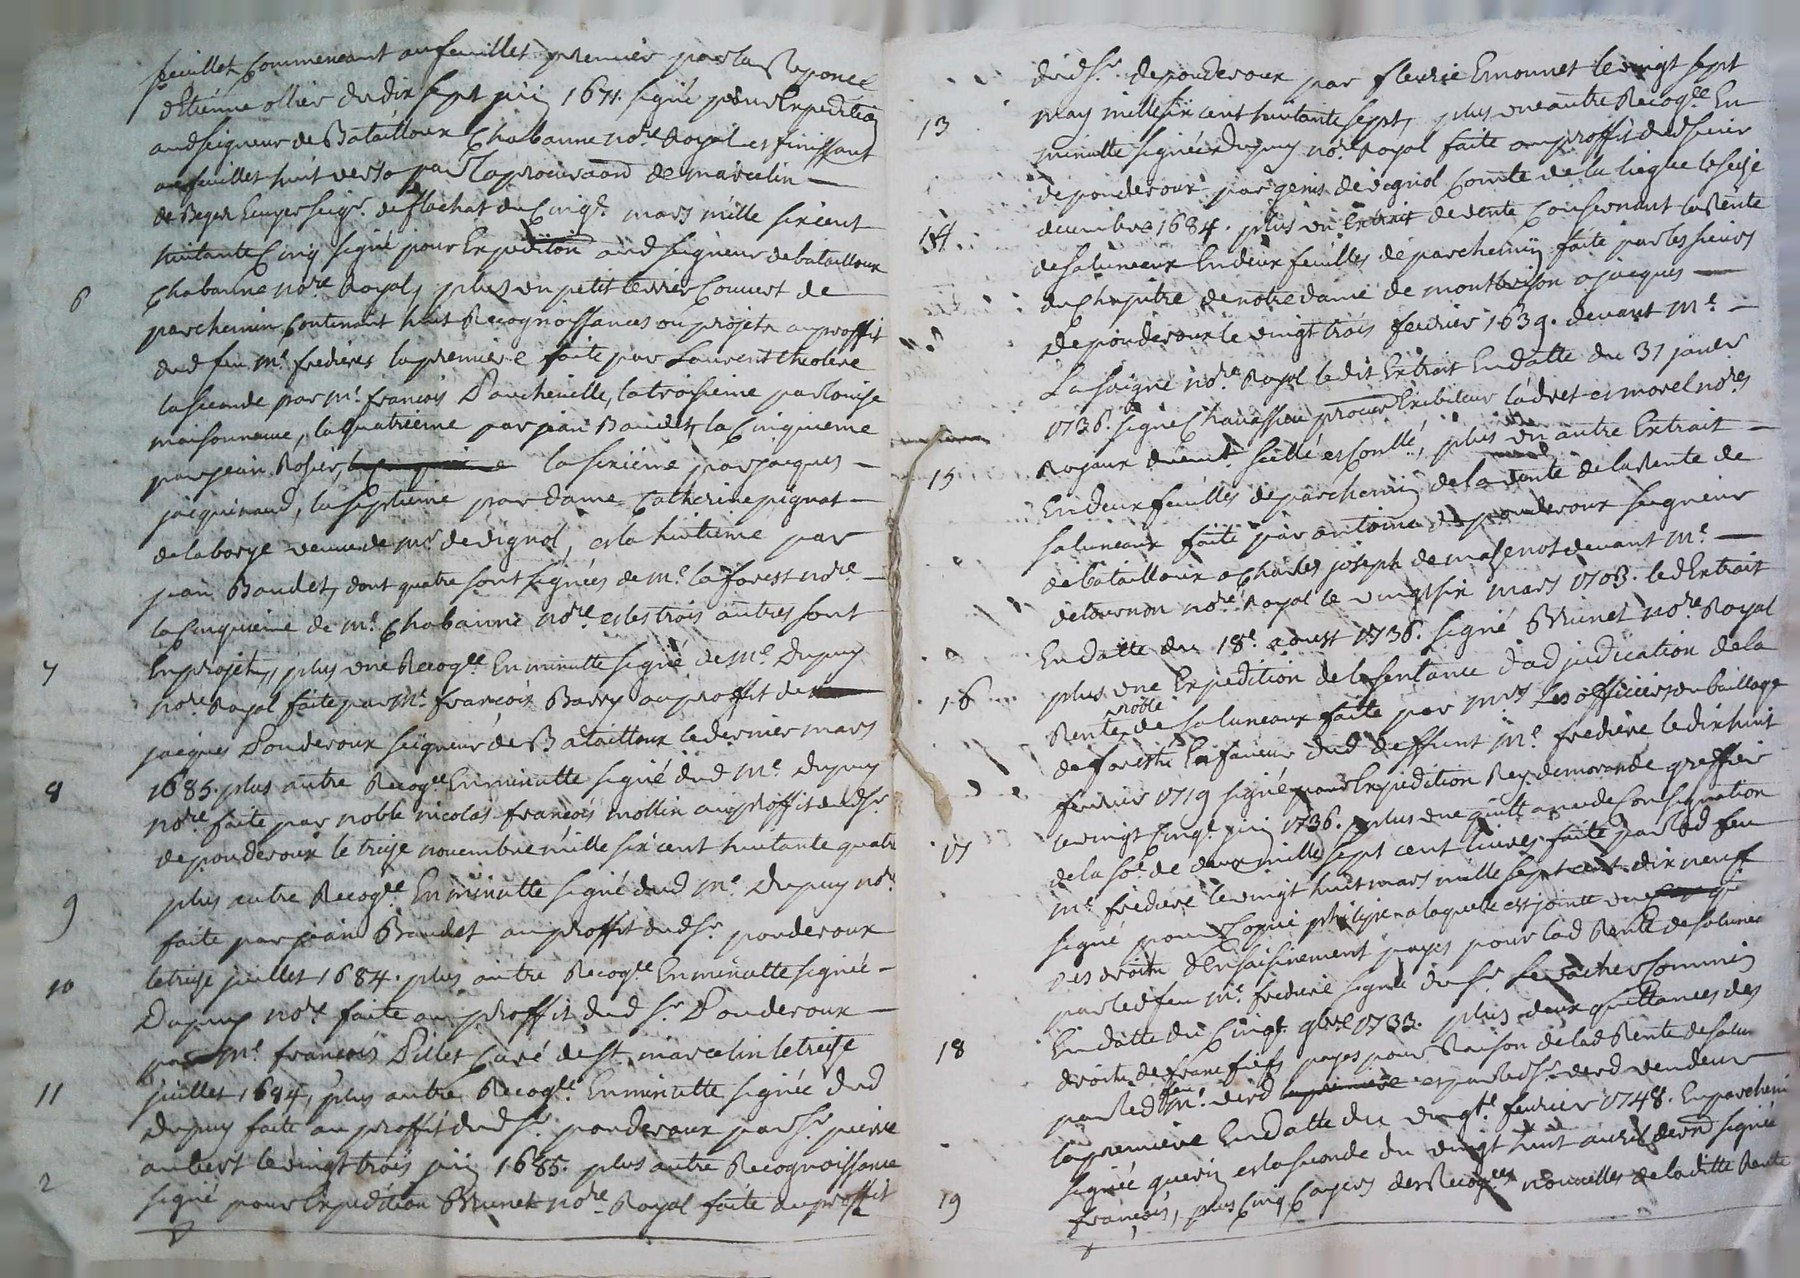 feuillet Commencant au feuillet premier par la Reponce
d'Etienne ollier du dix sept juin 1671. signé pour Expedition
aud seigneur de Batailloux Chabanne nore Royal et finissant
au feuillet huit verso par la procura^on de marcelin —
de Beget Ecuyer seigr. de flachat du Cinqe. mars mille six cent
huitante Cinq signé pour Expedition aud seigneur de batailloux
6 Chabanne nore Royal, plus un petit terrier Couvert de
parchemin Contenant huit Recognoissances ou projets au proffit
dud feu Mr. frederes la premiere faite par Laurent theolere
la seconde par Mr. francois Dancheville, la troisieme par louise
maisonneuve, la quatrieme par jean Baudet, la Cinquieme
par jean Rosier, la sixieme par jacques —
jacquinaud, la septieme par dame Catherine pignat —
de la borye veuve de Mr. de vignol, et la huitieme par
jean Baudet, dont quatre sont signées de Me. la forest nore —
la Cinquieme de Me. Chabanne nore. et les trois autres sont
7 En projet,, plus une Recoglle En minutte signé de Me. Dupuy
nore Royal faite par Me. françois Barry au proffit de
jacques Ponderoux seigneur de Batailloux le dernier mars
8 1685. plus autre Recoglle En minutte signé dud Me. Dupuy
nore. faite par noble nicolas françois mollin au proffit dud Sr.
de ponderoux le treize novembre mille six cent huitante quatre
9 plus autre Recoglle En minutte signé dud Me. Dupuy nore
faite par jean Baudet au proffit dud Sr. ponderoux
10 le treize juillet 1684. plus autre Recoglle En minutte signée —
Dupuy nore faite au proffit dud Sr. Ponderoux —
par Me. françois Pillet Curé de St. marcelin le treize
11 juillet 1684, plus autre Recoglle. En minutte signée dud
Dupuy faite au proffit dud Sr. ponderoux par Sr. pierre
aubert le vingt trois juin 1685. plus autre Recognoissance
2 signé pour Expedition Brunet nore. Royal faite au proffit
dud Sr. de ponderoux par fleurie Emonnet le vingt sept
13 may mille six cent huitante sept, plus une autre Recoglle En
minutte signée Dupuy nore. Royal faite au proffit dud sieur
de ponderoux par genis de vignol Comte de la liegue le seize
14 decembre 1684. plus un Extrait de vente Concernant la Rente
de saluneaux En deux feuilles de parchemin faite par les sieurs
du Chapitre de notre dame de montbrison a jacques —
de ponderoux le vingt trois fevrier 1639. devant Me. —
La saigne nore. Royal le dit Extrait En datte du 31 janer
1736. signé Chavassieu procur Exibiteur ladret et morel nores
15 Royaux duemt. scellé et Conllé, plus un autre Extrait —
En deux feuilles de parchemin de la vente de la Rente de
saluneaux faite par antoine de ponderoux seigneur
de batailloux a Charles joseph de masenot devant Me. —
de tournon nore. Royal le vingt six mars 1703. led Extrait
En datte du 18e. aoust 1736. signé Brunet nore. Royal
16 plus une Expedition de la sentance d'adjudication de la
Rente noble de saluneaux faite par Mrs Les officiers du baillage
de forestz En faveur dud deffunt Me. frediere le dix huit
fevrier 1719 signé pour Expedition Rey demorande greffier
17 le vingt Cinqe. juin 1736. plus une quittance de Consignation
de la soe. de deux mille sept cent livres faite par led feu
Me. frediere le vingt huit mars mille sept cent dix neuff
signé pour Copie philipe a laquelle est jointe une
des droits d'Ensaisinement payés pour lad Rente de saluneaux
par led feu Me. frediere signée du Sr. Le vacher Commis
18 En datte du Cinqe. 9bre 1733. plus deux quittances des
droits de franc fiefs payés pour Raison de lad Rente de salun
par led feu Me. et par led Sr. vendeur
la premiere En datte du vingte. fevrier 1748. En parchemin
signée guerin et la seconde du vingt huit avril dernr signée
19 françois, plus Cinq Cayers des Recoglles nouvelles de la ditte Rente